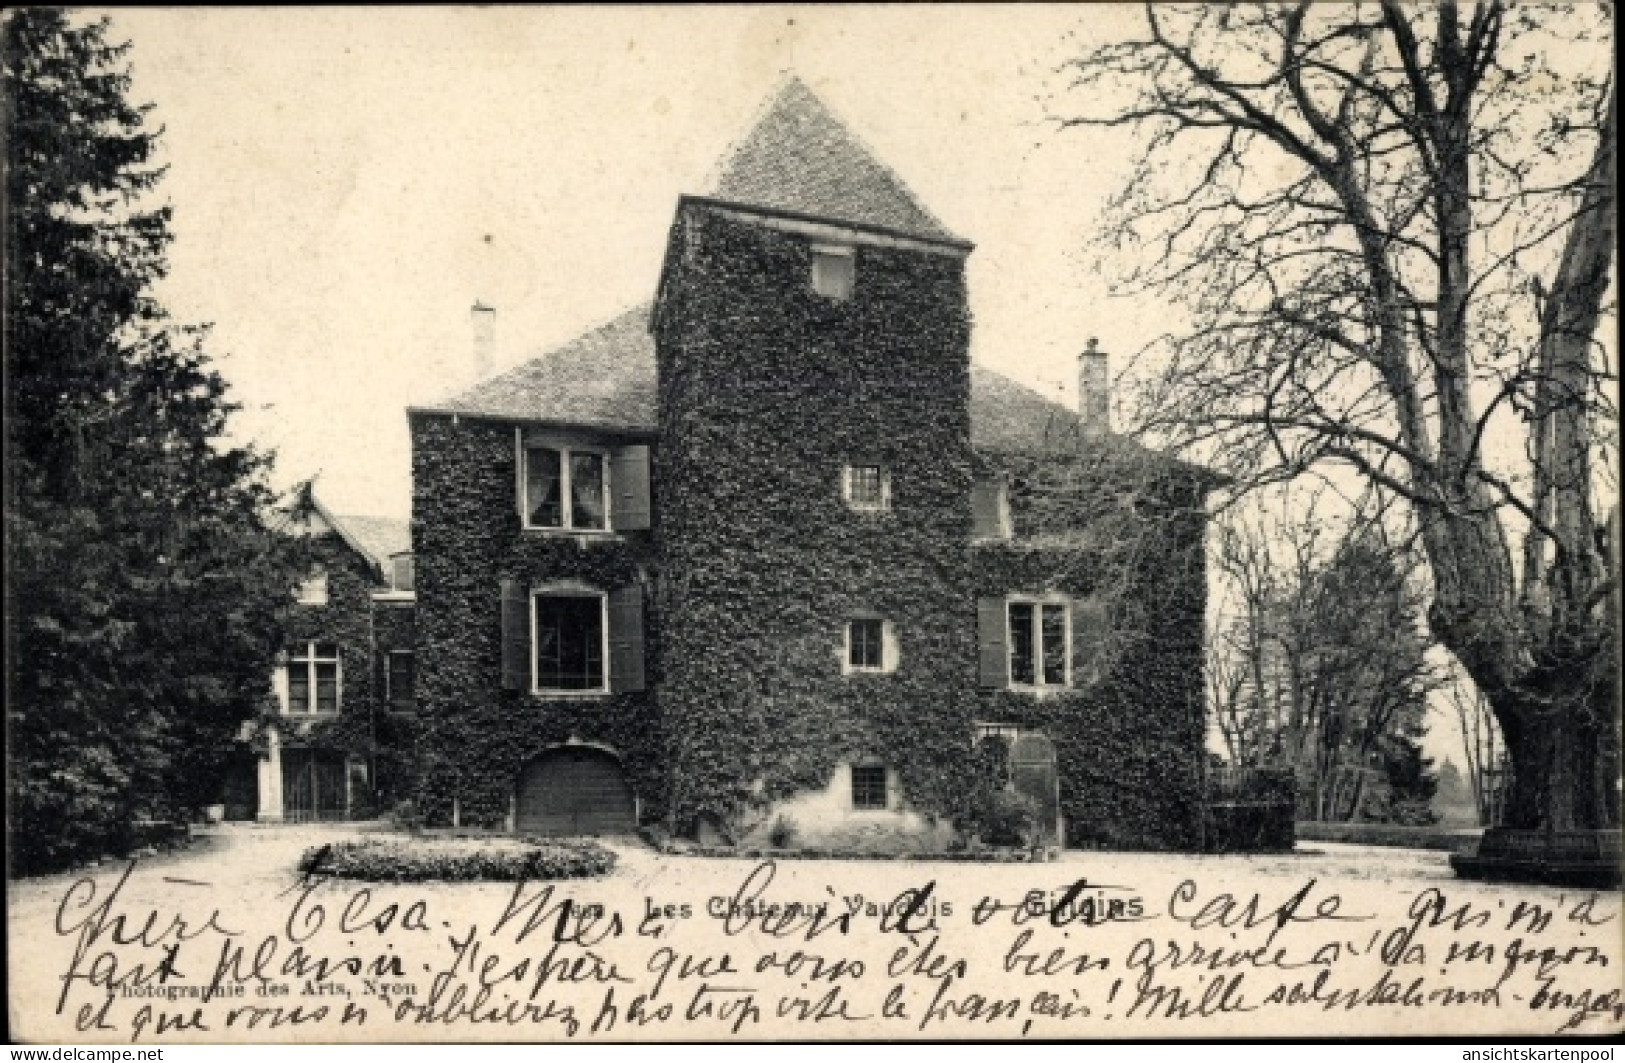 Les Châteaux Vaudois — Gingins
Chère Elsa. Merci bien de votre carte qui m'a
fait plaisir. J'espère que vous êtes bien arrivée à
et que vous n'oublierez pas trop vite le français! Mille salutations.
Photographie des Arts, Nyon
www.delcampe.net
ansichtskartenpool